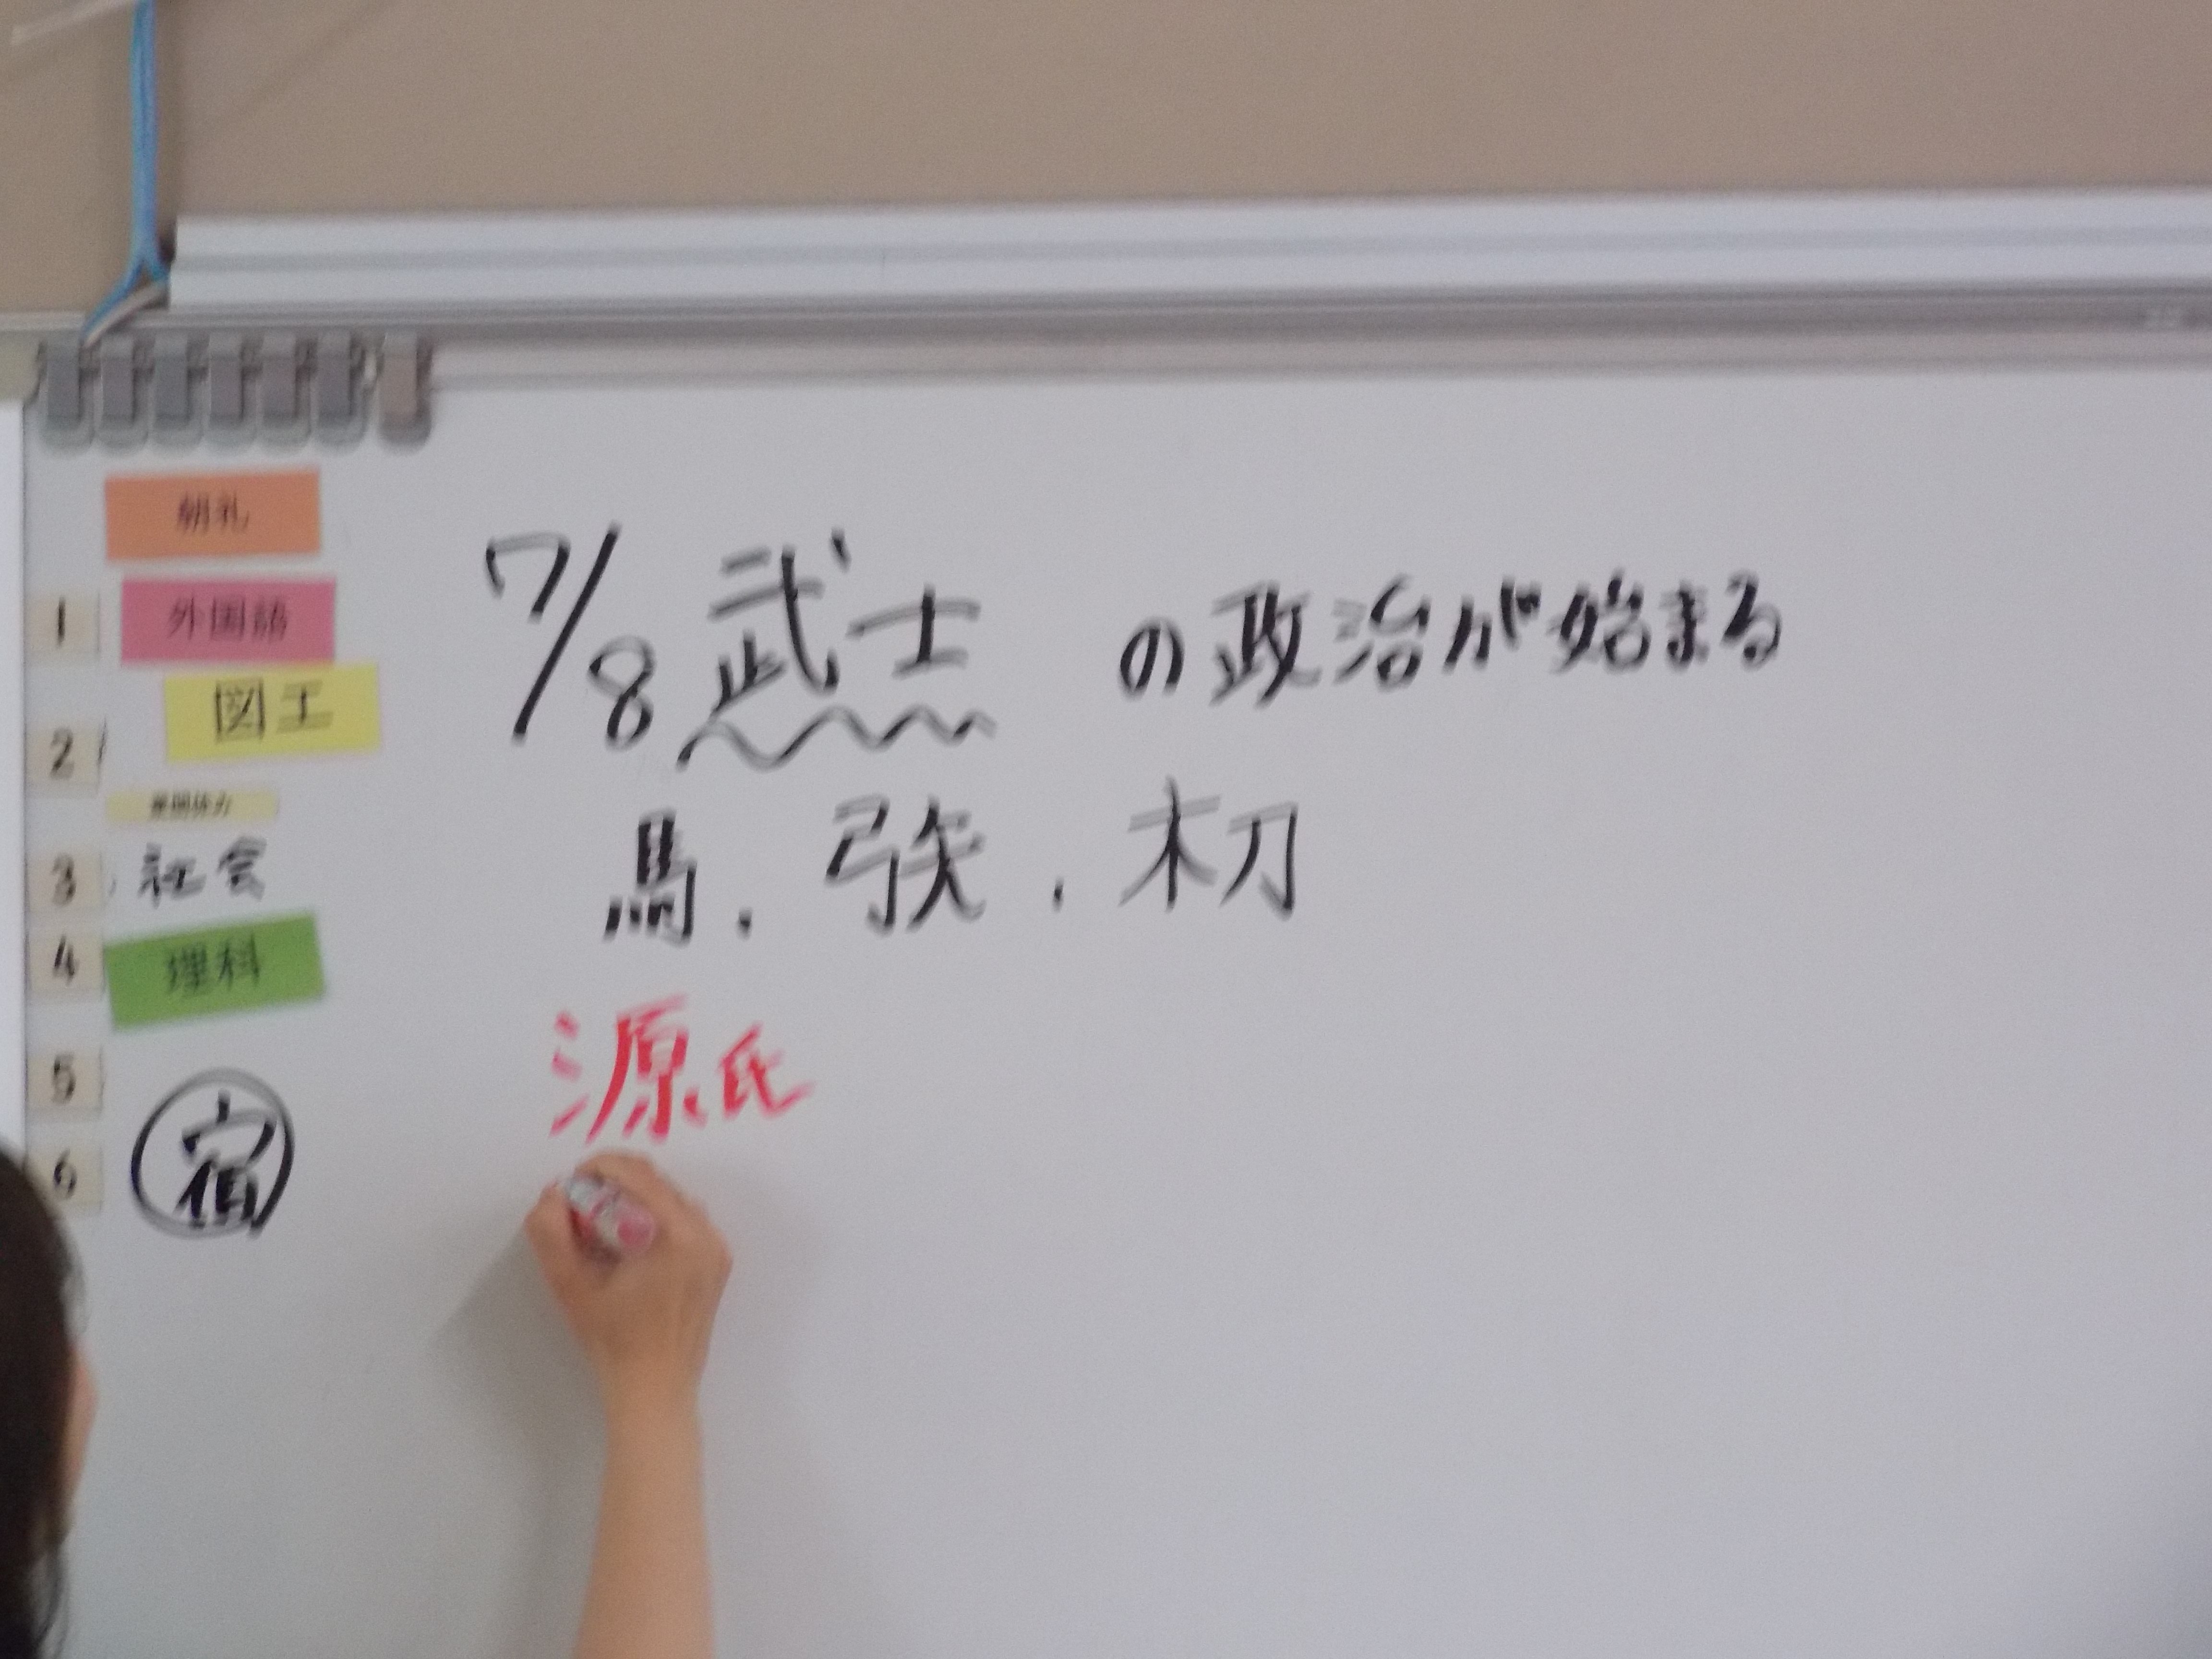 朝礼
1 外国語
2 図工
業間休み
3 社会
4 理科
5
6 宿
7/8 武士 の政治が始まる
馬、弓矢、木刀
源氏